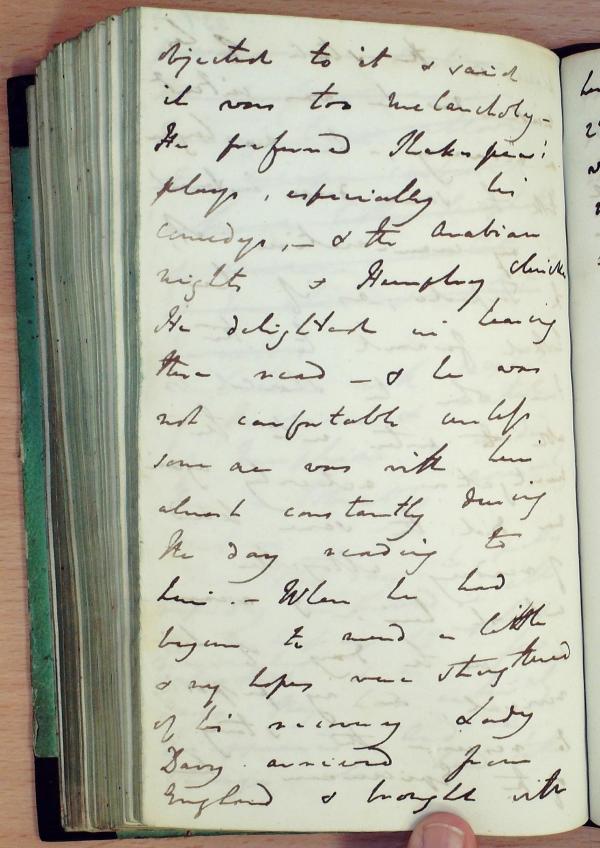 objected to it & said
it was too melancholy -
He preferred Shakespears'
plays, especially his
comedys, - & the Arabian
nights & Humphry Clinker
He delighted in hearing
these read - & he was
not comfortable unless
some one was with him
almost constantly during
the day reading to
him. - When he had
begun to mend a little
& my hopes were strengthened
of his recovery Lady
Davy arrived from
England & brought with